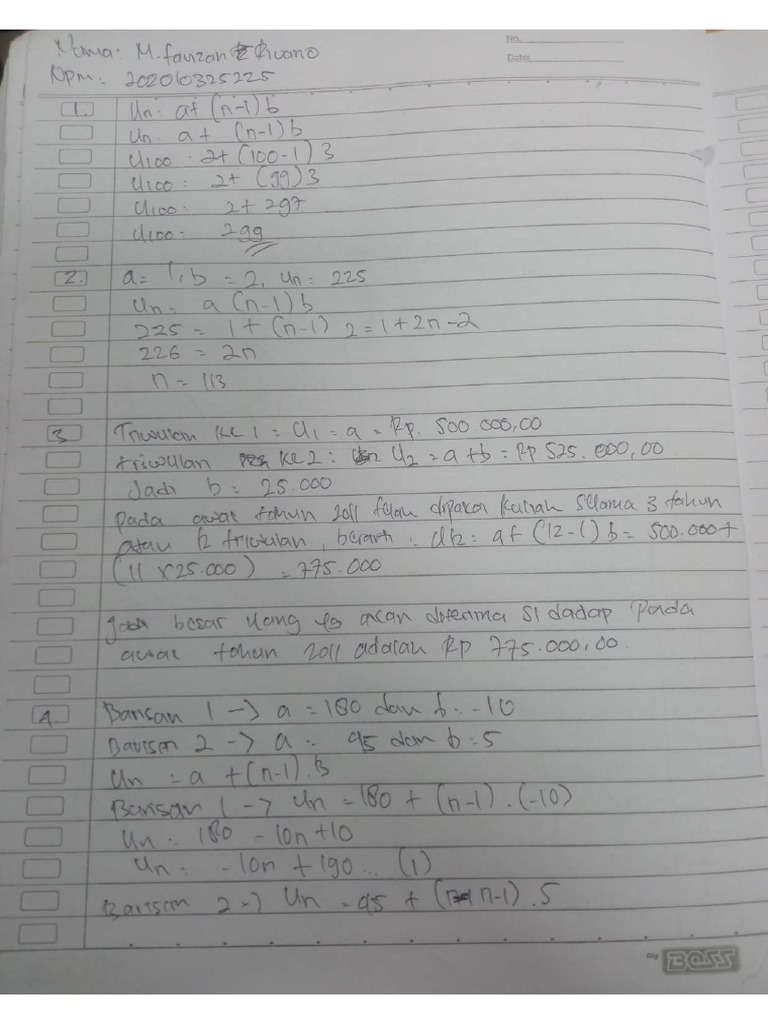 No.
Date:
Nama: M. fauzan
Npm: 202010325225
1. Un: a+ (n-1) b
Un: a + (n-1) b
U100: 2+ (100-1) 3
U100: 2+ (99) 3
U100: 2 + 297
U100: 299
2. a= 1, b = 2, Un: 225
Un= a (n-1) b
225 = 1 + (n-1) 2 = 1 + 2n - 2
226 = 2n
n = 113
3 Triwulan Ke 1 : U1 = a = Rp. 500.000,00
triwulan Ke 2 : U2 = a + b = Rp 525.000,00
Jadi b = 25.000
pada awal tahun 2011 telah dipakai kuliah selama 3 tahun
atau 12 triwulan, berarti : U12 = a + (12-1) b = 500.000 +
(11 x 25.000) = 775.000
Jadi besar uang yg akan diterima si dadap pada
awal tahun 2011 adalah Rp 775.000,00.
4. Barisan 1 -> a = 180 dan b = -10
Barisan 2 -> a = 95 dan b = 5
Un = a + (n-1) . B
Barisan 1 -> Un = 180 + (n-1) . (-10)
Un = 180 - 10n + 10
Un = - 10n + 190 ... (1)
Barisan 2 -> Un = 95 + (n-1) . 5
by BOSS